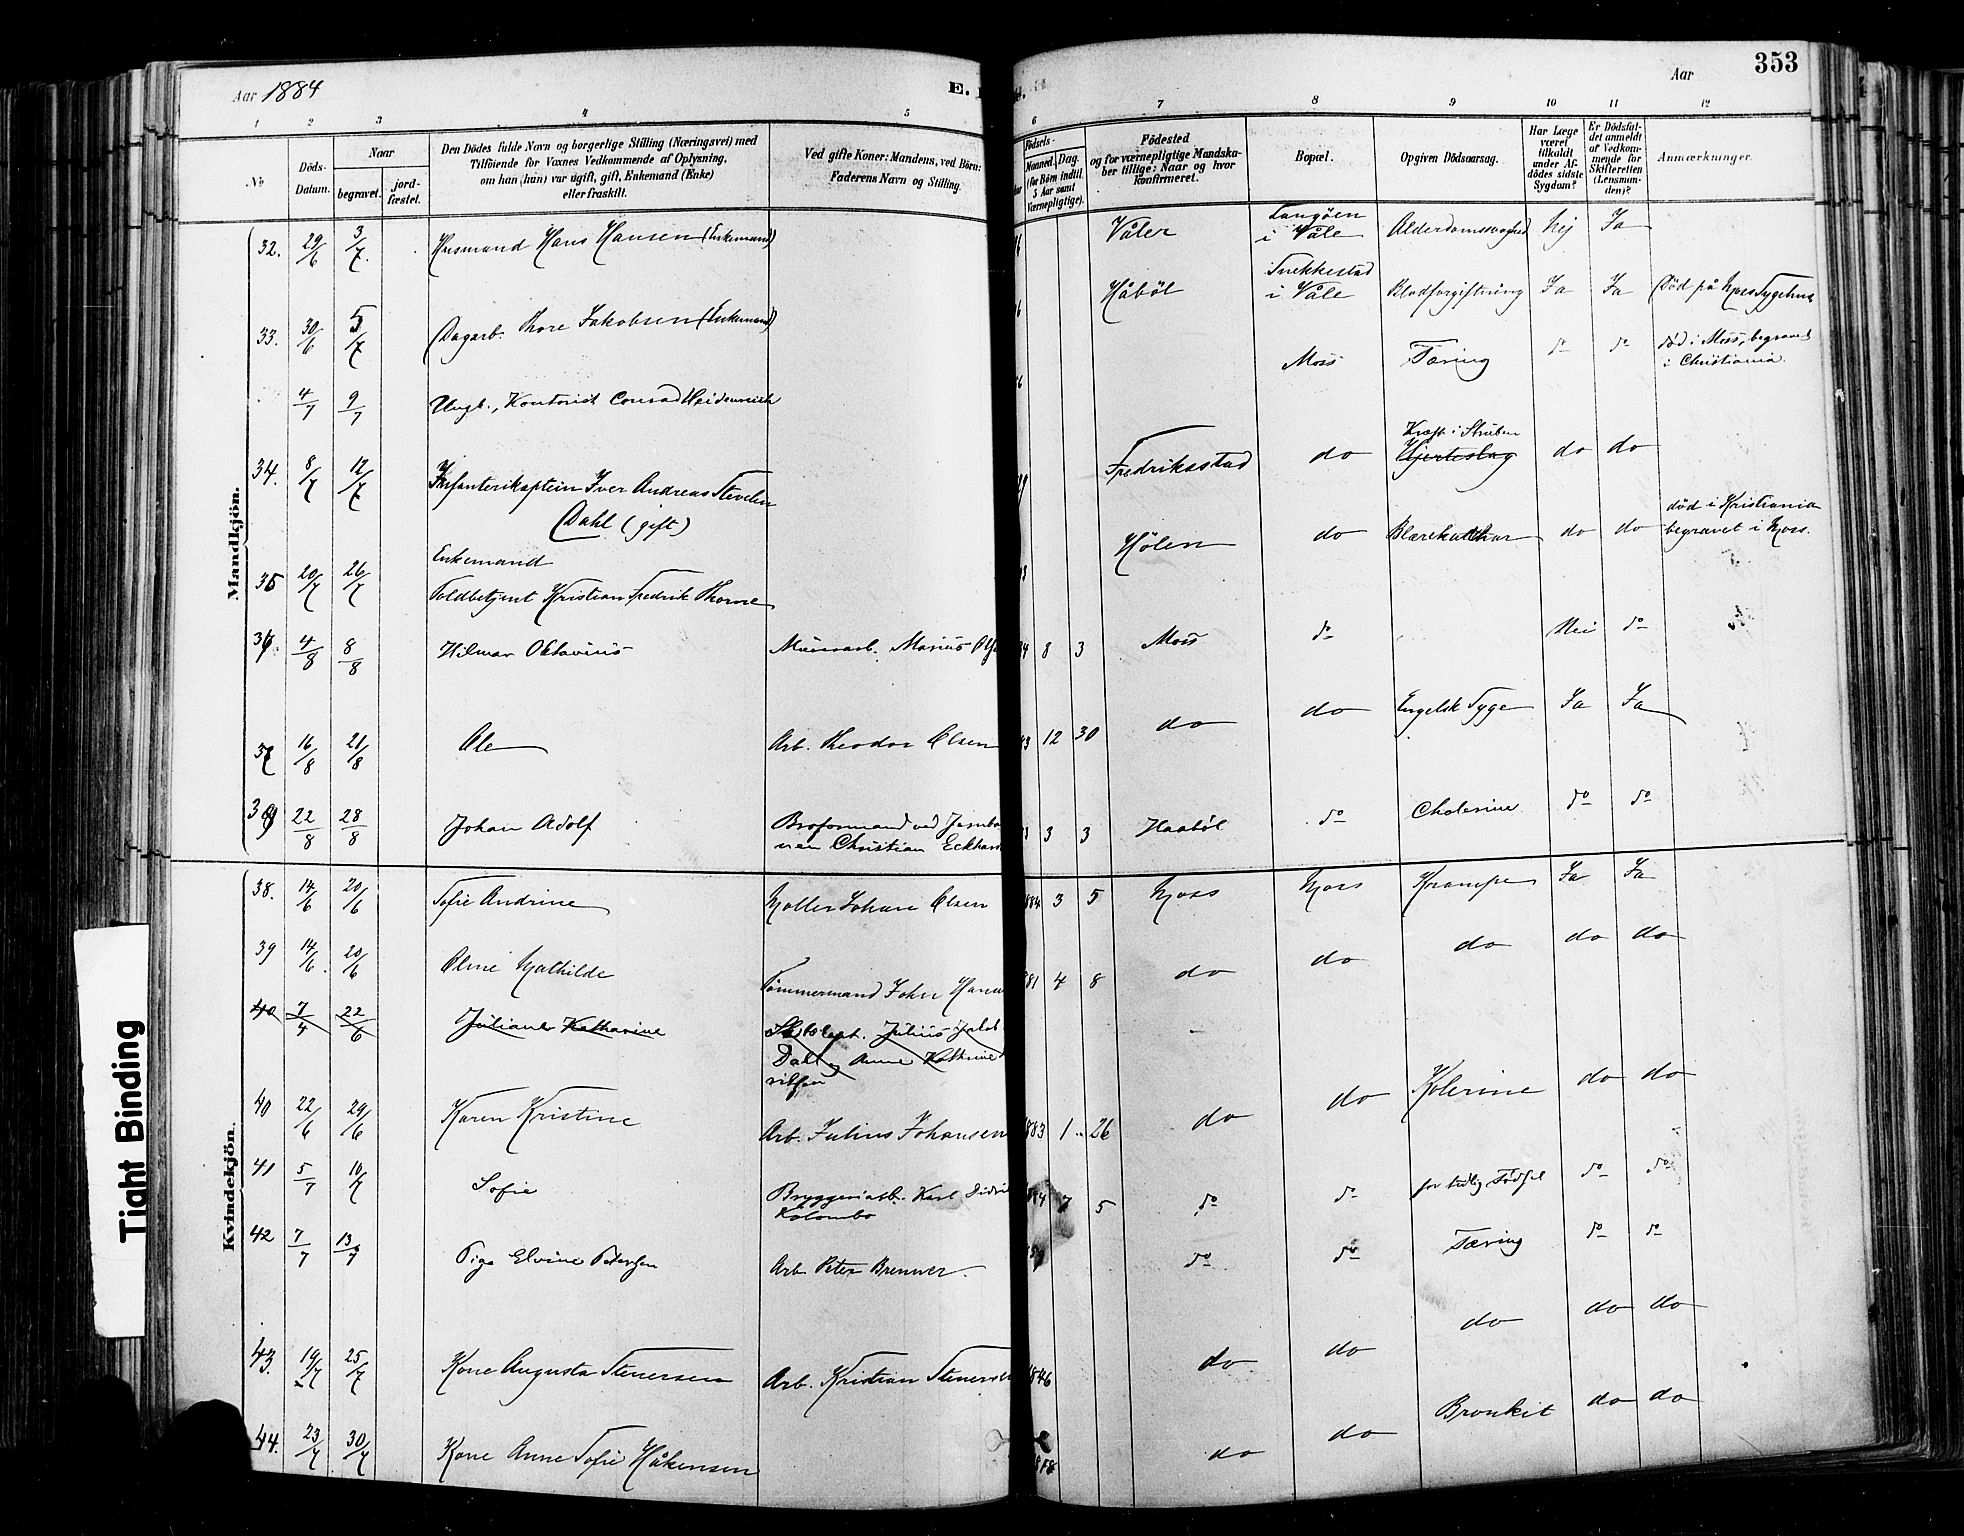 Aar 1884
E.
Aar
353
1 2 3 4 5 6 7 8 9 10 11 12
No
Döds-Datum.
Naar
begravet.
jord-fæstet.
Den Dödes fulde Navn og borgerlige Stilling (Næringsvei) med
Tilföiende for Voxnes Vedkommende af Oplysning,
om han (hun) var ugift, gift, Enkemand (Enke)
eller fraskilt.
Ved gifte Koner: Mandens, ved Börn:
Faderens Navn og Stilling.
Födsels-
Maaned. Dag.
(for Börn indtil
5 Aar samt
Værnepligtige).
Födested
og for værnepligtige Mandska-
ber tillige: Naar og hvor
konfirmeret.
Bopæl.
Opgiven Dödsaarsag.
Har Læge
været
tilkaldt
under Af-
dödes sidste
Sygdom?
Er Dödsfal-
det anmeldt
af Vedkom-
mende for
Skifteretten
(Lensman-
den)?
Anmærkninger.
Mandkjön.
32. 29/6 3/7 Husmand Hans Hansen (Enkemand) Våler Langöen i Våle Alderdomssvaghed Nej Ja
33. 30/6 5/7 Dagarb. Thore Jakobsen (Enkemand) Håböl Snekkestad i Våle Blodforgiftning Ja Ja Död på Moss Sygehus
4/7 9/7 Ungk., Kontorist Conrad Heidenreich Moss Tæring do do död i Moss, begravet
i Christiania.
34. 8/7 12/7 Infanterikaptein Iver Andreas Stevelin
Dahl (gift) Fredriksstad do Kræft i Struben
Hjerteslag do do
35 20/7 26/7 Enkemand
Toldbetjent Kristian Fredrik Thorne Hölen do Blærekatarrh do do död i Kristiania
begravet i Moss.
36. 4/8 8/8 Hilmar Oktavius Murerarb. Marius 84 8 3 Moss do Nei do
37 16/8 21/8 Ole Arb. Theodor Olsen 83 12 30 do do Engelsk Syge Ja Ja
22/8 28/8 Johan Adolf Broformand ved Jernba
nen Christian Eckhar 3 3 Haaböl do Cholerine do do
Kvindekjön.
38. 14/6 20/6 Sofie Andrine Möller Johan Olsen 884 3 5 Moss Moss Krampe Ja Ja
39 14/6 20/6 Oline Mathilde Tömmermand John Hans 81 4 8 do do do do do
40 7/4 22/6 Juliane Katharine Julius Jakob
Dahl og Anne Kathrine
40 22/6 29/6 Karen Kristine Arb. Julius Johansen 883 1 26 do do Kolerine do do
41 5/7 10/7 Sofie Bryggeriarb. Karl Didri
Kolombo 84 7 5 do do for tidlig Födsel do do
42 7/7 13/7 Pige Elvine Petersen Arb. Peter Brenner. do do Tæring do do
43. 19/7 25/7 Kone Augusta Stenersen Arb. Kristian Stenerse 1846 do do do do do
44. 23/7 30/7 Kone Anne Sofie Håkensen do do Bronkit do do
Tight Binding